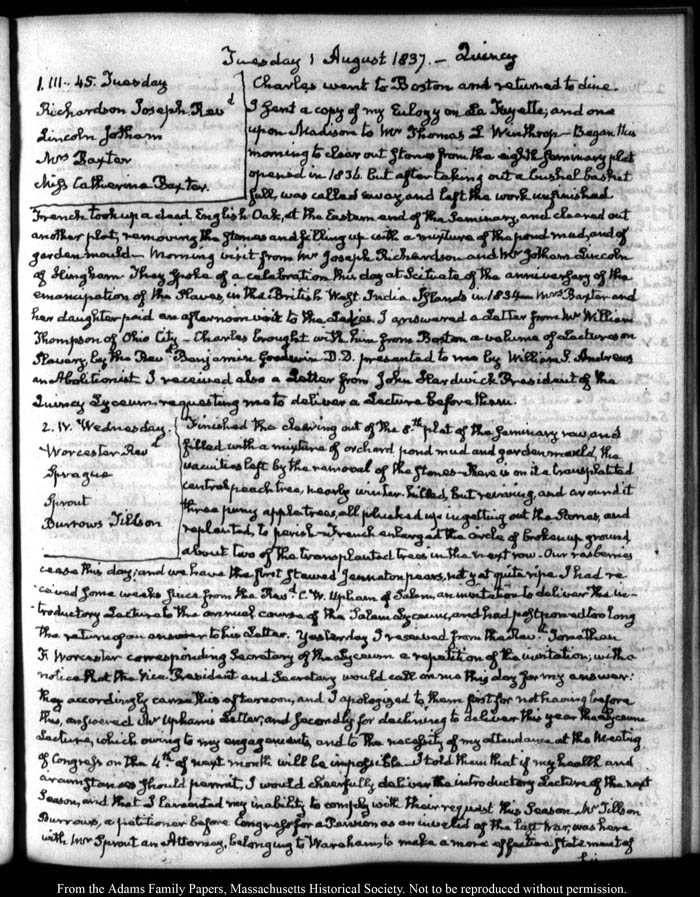 Tuesday 1 August 1837. – Quincy
1. III.. 45. Tuesday
Richardson Joseph Revd
Lincoln Jotham
Mrs Baxter
Miss Catherine Baxter.
Charles went to Boston and returned to dine.
I sent a copy of my Eulogy on La Fayette, and one
upon Madison to Mr Thomas L Winthrop – Began this
morning to clear out stones from the eighth seminary plot
opened in 1836. but after taking out a bushel basket
full, was called away and left the work unfinished
French took up a dead English Oak, at the Eastern end of the Seminary, and cleared out
another plot, removing the stones and filling up with a mixture of the pond mud, and of
garden mould – Morning visit from Mr Joseph Richardson and Mr Jotham Lincoln
of Hingham They spoke of a celebration this day at Scituate of the anniversary of the
emancipation of the Slaves, in the British West India Islands in 1834 – Mrs Baxter and
her daughter paid an afternoon visit to the Ladies. I answered a Letter from Mr William
Thompson of Ohio City – Charles brought with him from Boston a volume of Lectures on
Slavery, by the Revd Benjamin Goodwin D.D. presented to me by William S. Andrews
an Abolitionist I received also a Letter from John Hardwick President of the
Quincy Lyceum requesting me to deliver a Lecture before them.
2. IV. Wednesday.
Worcester Revd
Sprague
Sprout
Burrows Tillson
Finished the clearing out of the 8th plot of the Seminary row, and
filled with a mixture of orchard pond mud and garden mould, the
vacuities left by the removal of the stones – There is on it a transplanted
central peach tree, nearly winter-killed, but reviving, and around it
three puny apple trees, all plucked up in getting out the stones, and
replanted, to perish – French enlarged the circle of broken up ground
about two of the transplanted trees in the next row – Our rasberries
cease this day; and we have the first stewed Jennaton pears, not yet quite ripe. I had re-
ceived some weeks since from the Revd C. W. Upham of Salem, an invitation to deliver the in-
troductory Lecture to the annual course of the Salem Lyceum, and had postponed too long
the return of an answer to his Letter. Yesterday I received from the Revd Jonathan
F. Worcester corresponding Secretary of the Lyceum a repetition of the invitation; with a
notice that the Vice-President and Secretary would call on me this day for my answer:
they accordingly came this afternoon, and I apologised to them first for not having before
this, answered Mr Upham's Letter, and secondly for declining to deliver this year the Lyceum
Lecture, which owing to my engagements, and to the necessity of my attendance at the Meeting
of Congress on the 4th of next month will be impossible. I told them that if my health and
circumstances should permit, I would cheerfully deliver the introductory Lecture of the next
Season, and that I lamented my inability to comply with their request this Season. Mr Tillson
Burrows, a petitioner before Congress for a Pension as an invalid of the last War, was here
with Mr Sprout an Attorney, belonging to Wareham to make a more effective statement of
From the Adams Family Papers, Massachusetts Historical Society. Not to be reproduced without permission.